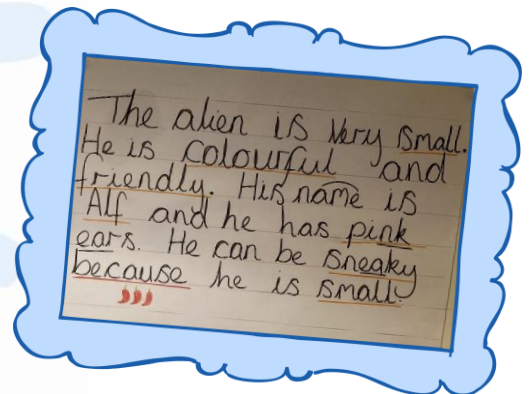 The alien is very small.
He is colourful and
friendly. His name is
Alf and he has pink
ears. He can be sneaky
because he is small.